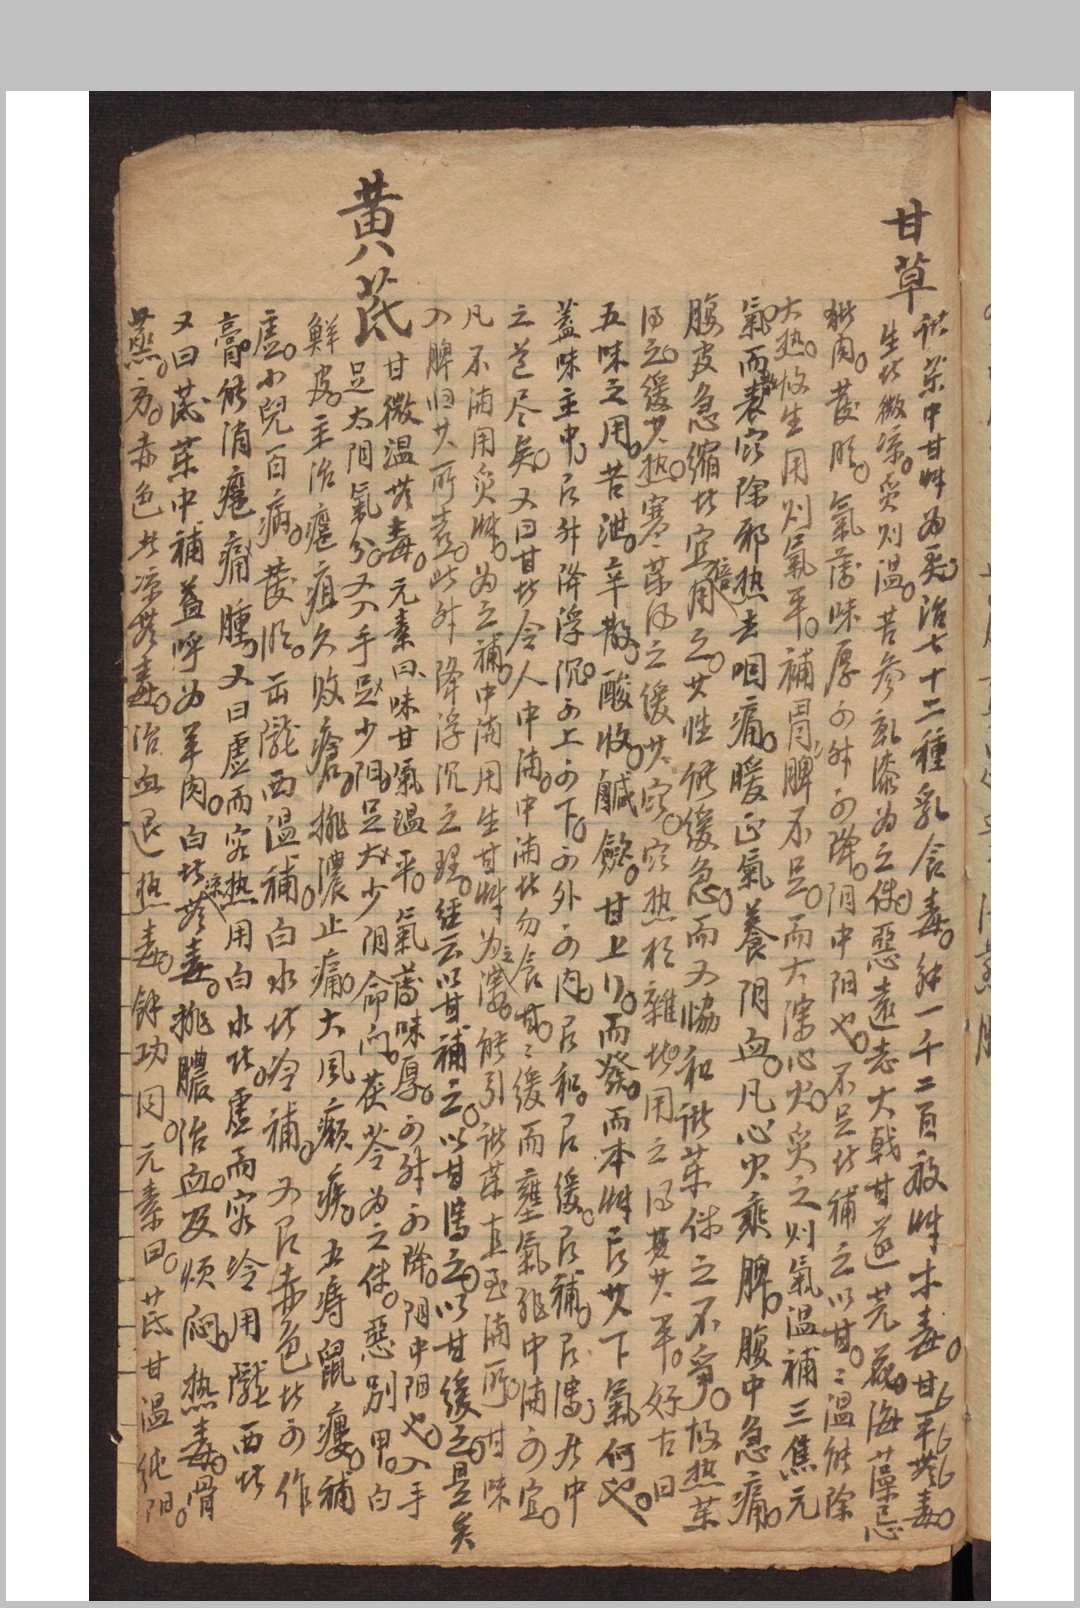 甘草
諸药中甘艸为君。治七十二種乳食毒。解一千二百般艸木毒。甘平無毒。
生者微凉。炙则温。苦參乹漆为之使。惡遠志大戟甘遂芫花。海藻忌
猪肉。發明。氣薄味厚可升可降。阴中阳也。不足者補之以甘。〻温能除
大热。故生用则氣平。補胃脾不足。而大瀉心火。炙之则氣温補三焦元
氣。而散表寒除邪热去咽痛。暖正氣養阴血。凡心火乘脾。腹中急痛。
腹皮急缩者宜倍用之。其性能緩急。而又恊和諸药使之不争。故热药
得之緩其热。寒药得之緩其寒。寒热相雜者用之得其平。好古曰
五味之用。苦泄辛散酸收鹹斂。甘上行而發。而本艸言其下氣何也。
蓋味主中。有升降浮沉。可上可下。可外可内。有和有緩。有補有瀉。居中
之道尽矣。又曰甘者令人中满。中满者勿食甘。〻緩而壅氣非中满可宜。
凡不满用炙艸。为之補。中满用生甘艸为之瀉。能引諸药直至满所。甘味
入脾归其所喜。此升降浮沉之理。经云以甘補之。以甘瀉之。以甘緩之。是矣
黄芪
甘微温無毒。元素曰味甘氣温平。氣薄味厚。可升可降。阴中阳也。入手
足太阴氣分。又入手足少阳。足太少阴命门。茯苓为之使。惡别甲。白
鮮皮。主治癰疽久败瘡。排濃止痛。大風癩疾。五痔鼠瘻。補
虚。小兒百病。發明。出隴西温補。白水者冷補。又有赤色者可作
膏。能消癰痛腫。又曰虚而客热用白水者。虚而客冷用隴西者
又曰芪药中補益呼为羊肉。白者凉無毒。排膿治血。及烦闷。热毒骨
蒸。劳。赤色者凉無毒。治血退热毒。餘功同。元素曰。芪甘温纯阳。